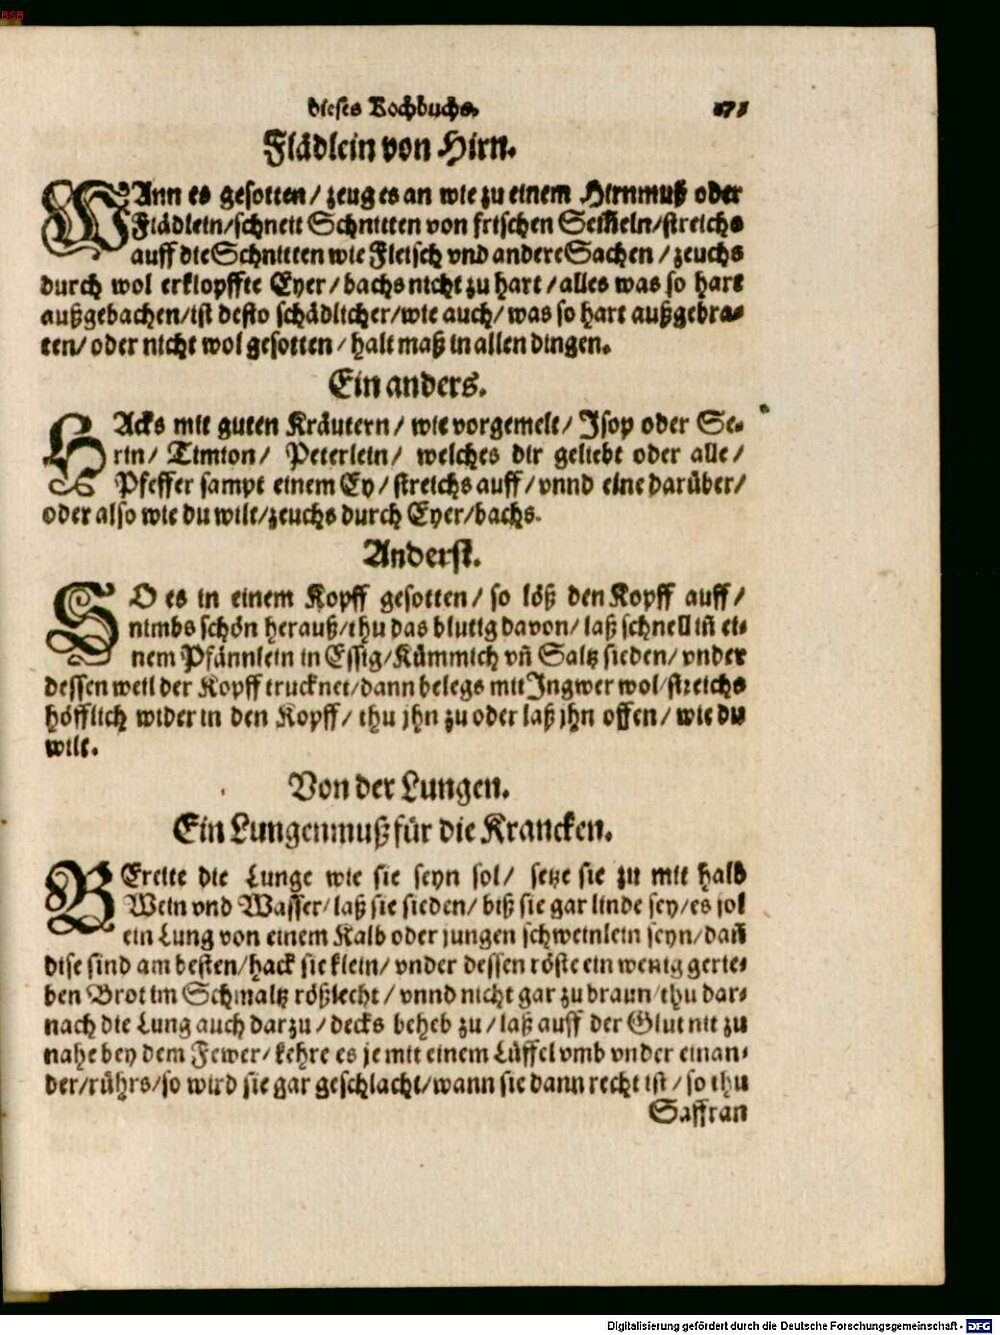 BSB
dieses Kochbuchs. 171
Flädlein von Hirn.
WAnn es gesotten / zeug es an wie zu einem Hirnmuß oder
Flädlein/schneit Schnitten von frischen Semeln/streichs
auff die Schnitten wie Fleisch vnd andere Sachen / zeuchs
durch wol erklopffte Eyer / bachs nicht zu hart / alles was so hart
außgebachen/ist desto schädlicher/wie auch/ was so hart außgebra-
ten/ oder nicht wol gesotten / halt maß in allen dingen.
Ein anders.
HAcks mit guten Kräutern / wie vorgemelt / Jsop oder Se-
rin/ Timion/ Peterlein/ welches dir geliebt oder alle/
Pfeffer sampt einem Ey / streichs auff / vnnd eine darüber/
oder also wie du wilt/zeuchs durch Eyer/bachs.
Anderst.
SO es in einem Kopff gesotten / so löß den Kopff auff /
nimbs schön herauß/thu das blutig davon/ laß schnell iñ ei-
nem Pfännlein in Essig/Kümmich vñ Saltz sieden/ vnder
dessen weil der Kopff trucknet/dann belegs mit Jngwer wol/streichs
höfflich wider in den Kopff / thu jhn zu oder laß jhn offen / wie du
wilt.
Von der Lungen.
Ein Lungenmuß für die Krancken.
BEreite die Lunge wie sie seyn sol/ setze sie zu mit halb
Wein vnd Wasser/ laß sie sieden/ biß sie gar linde sey/es sol
ein Lung von einem Kalb oder jungen schweinlein seyn/dañ
dise sind am besten/hack sie klein/ vnder dessen röste ein wenig gerie-
ben Brot im Schmaltz rößlecht / vnnd nicht gar zu braun/thu dar-
nach die Lung auch darzu / decks beheb zu / laß auff der Glut nit zu
nahe bey dem Fewer/ kehre es je mit einem Lüffel vmb vnder einan-
der/rührs/so wird sie gar geschlacht/wann sie dann recht ist / so thu
Saffran
Digitalisierung gefördert durch die Deutsche Forschungsgemeinschaft - DFG